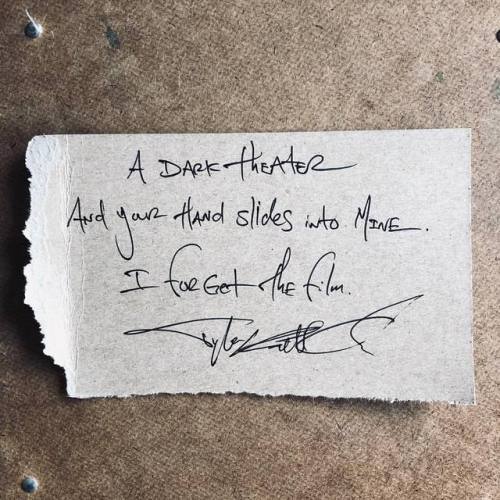 A DARK theATER
And your HAND slides into MINE.
I forGet the film.